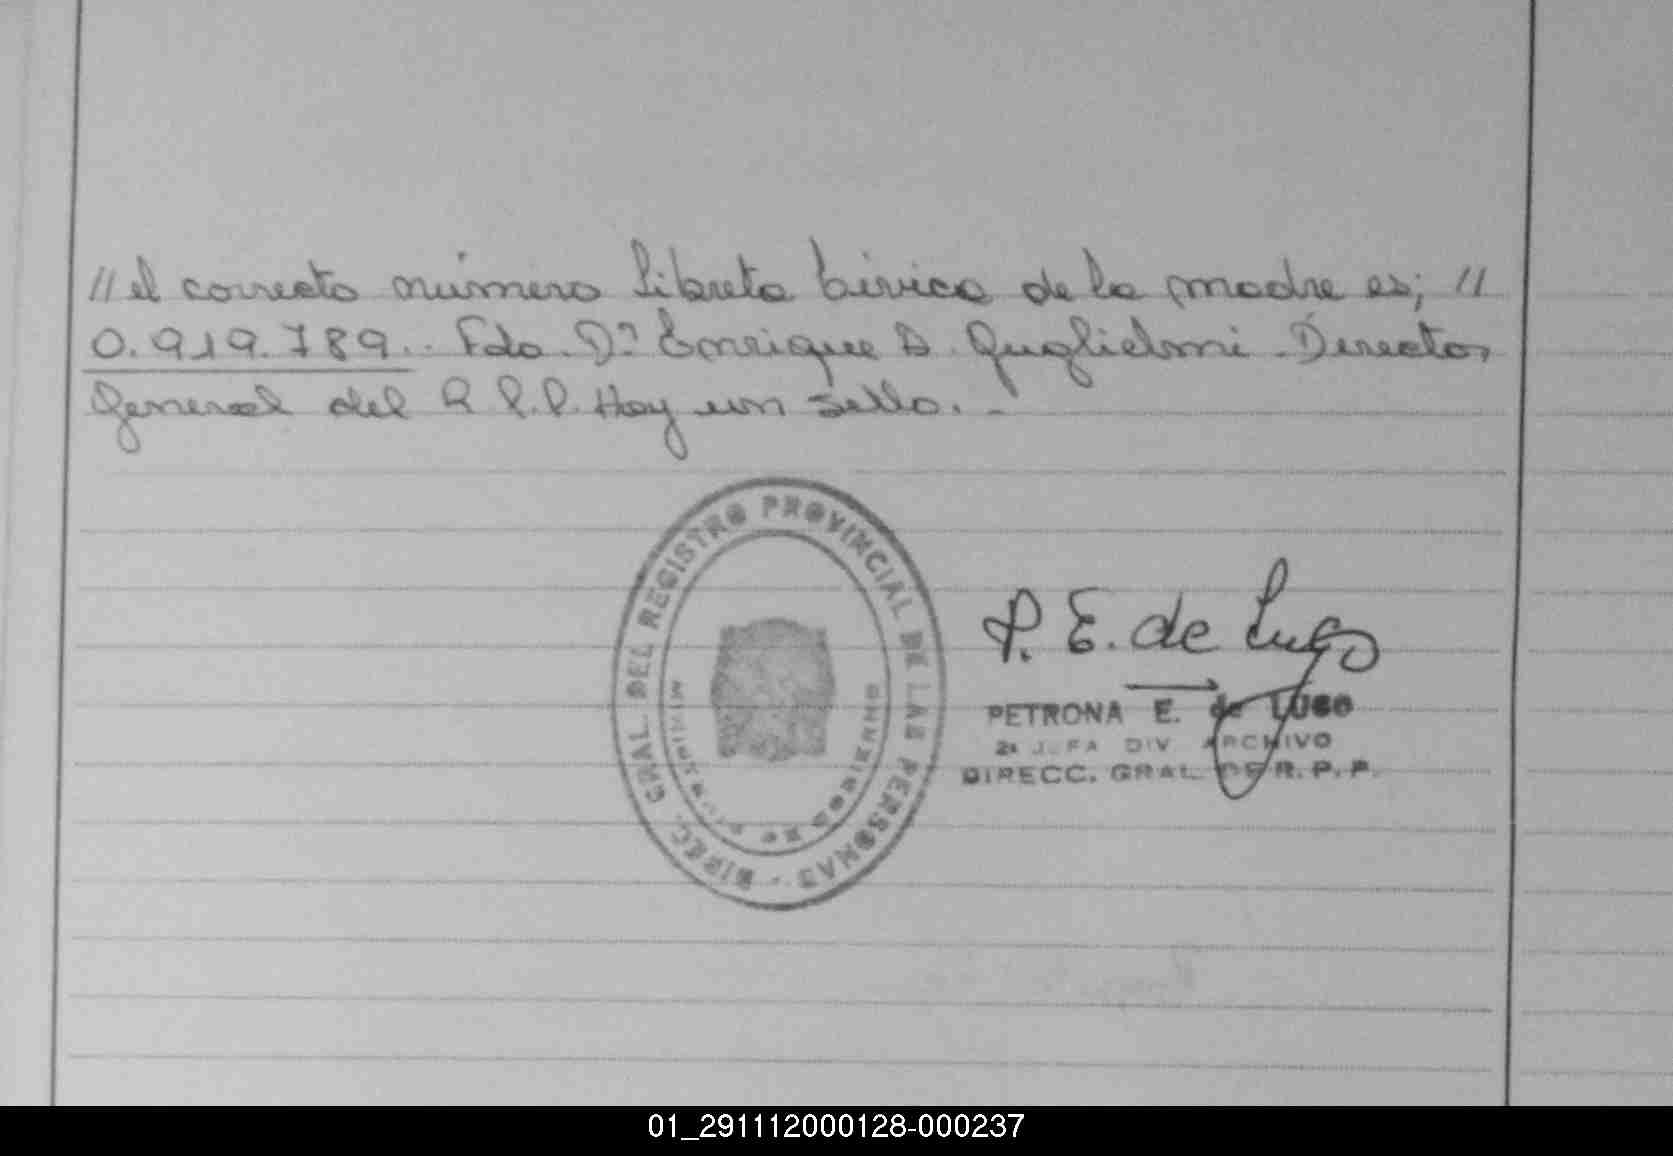 // el correcto número Libreta Cívica de la madre es; //
0.919.789.. Fdo. Dº Enrique A. Guglielmi. Director
General del R.P.P. Hay un sello. -
DIREC. GRAL. DEL REGISTRO PROVINCIAL DE LAS PERSONAS -
P. E. de Lugo
PETRONA E. de LUGO
2a JEFA DIV ARCHIVO
DIRECC. GRAL. DE R. P. P.
01_291112000128-000237